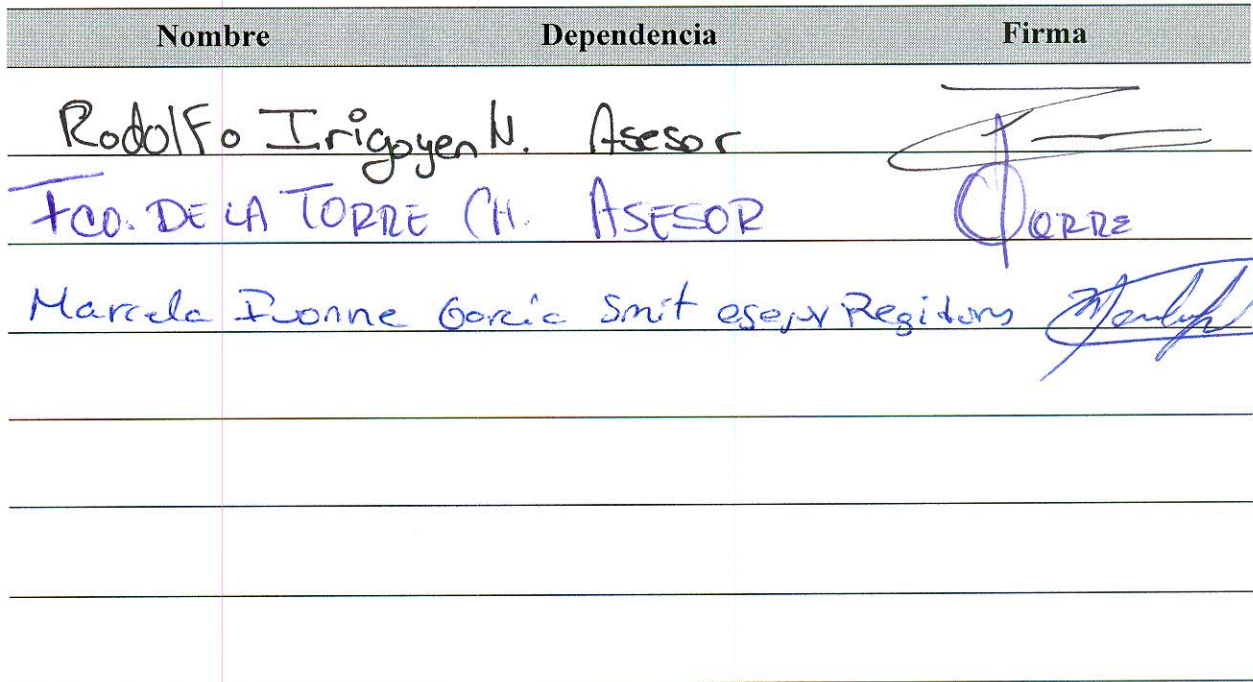 Nombre Dependencia Firma
Rodolfo Irigoyen N. Asesor
Fco. DE LA TORRE CH. ASESOR TORRE
Marcela Ivonne García Smit